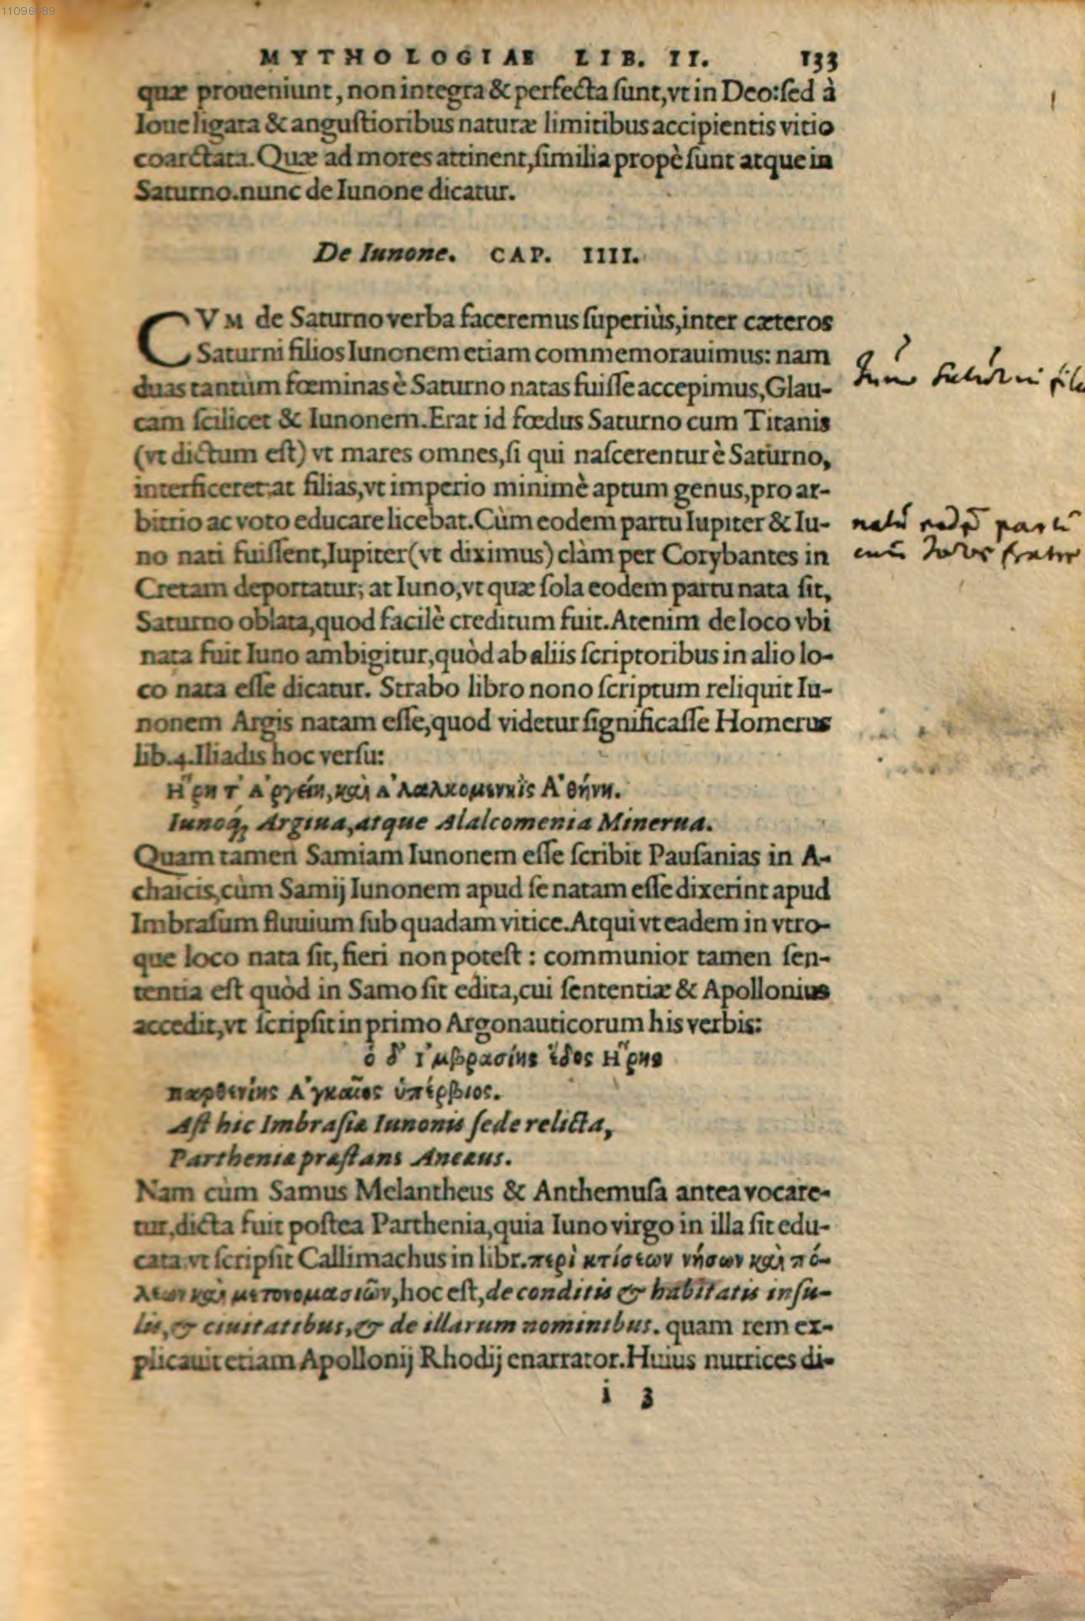 11096689
MYTHOLOGIAE LIB. II. 133
quæ proueniunt, non integra & perfecta sunt, vt in Deo: sed à
Ioue ligata & angustioribus naturæ limitibus accipientis vitio
coarctata. Quæ ad mores attinent, similia propè sunt atque in
Saturno. nunc de Iunone dicatur.
De Iunone. CAP. IIII.
CVM de Saturno verba faceremus superiùs, inter cæteros
Saturni filios Iunonem etiam commemorauimus: nam
duas tantùm fœminas è Saturno natas fuisse accepimus, Glau-
cam scilicet & Iunonem. Erat id fœdus Saturno cum Titanis
(vt dictum est) vt mares omnes, si qui nascerentur è Saturno,
interficeret: at filias, vt imperio minimè aptum genus, pro ar-
bitrio ac voto educare licebat. Cùm eodem partu Iupiter & Iu-
no nati fuissent, Iupiter (vt diximus) clàm per Corybantes in
Cretam deportatur; at Iuno, vt quæ sola eodem partu nata sit,
Saturno oblata, quod facilè creditum fuit. Atenim de loco vbi
nata fuit Iuno ambigitur, quòd ab aliis scriptoribus in alio lo-
co nata esse dicatur. Strabo libro nono scriptum reliquit Iu-
nonem Argis natam esse, quod videtur significasse Homerus
lib. 4. Iliadis hoc versu:
Ἥρη τ' Ἀργείη, καὶ Ἀλαλκομενηῒς Ἀθήνη.
Iunoq́; Argiua, atque Alalcomenia Minerua.
Quam tamen Samiam Iunonem esse scribit Pausanias in A-
chaicis, cùm Samij Iunonem apud se natam esse dixerint apud
Imbrasum fluuium sub quadam vitice. Atqui vt eadem in vtro-
que loco nata sit, fieri non potest: communior tamen sen-
tentia est quòd in Samo sit edita, cui sententiæ & Apollonius
accedit, vt scripsit in primo Argonauticorum his verbis:
ὁ δ' Ἰμβρασίης ἕδος Ἥρης
παρθενίης Ἀγκαῖος ὑπέρβιος.
Ast hic Imbrasiæ Iunonis sede relicta,
Parthenia præstans Ancæus.
Nam cùm Samus Melantheus & Anthemusa antea vocare-
tur, dicta fuit postea Parthenia, quia Iuno virgo in illa sit edu-
cata vt scripsit Callimachus in libr. περὶ κτίσεων νήσων καὶ πό-
λεων καὶ μετονομασιῶν, hoc est, de conditis & habitatis insu-
lis, & ciuitatibus, & de illarum nominibus. quam rem ex-
plicauit etiam Apollonij Rhodij enarrator. Huius nutrices di-
i 3
Juno Saturni filia
nata eodē partu
cum Ioue fratre